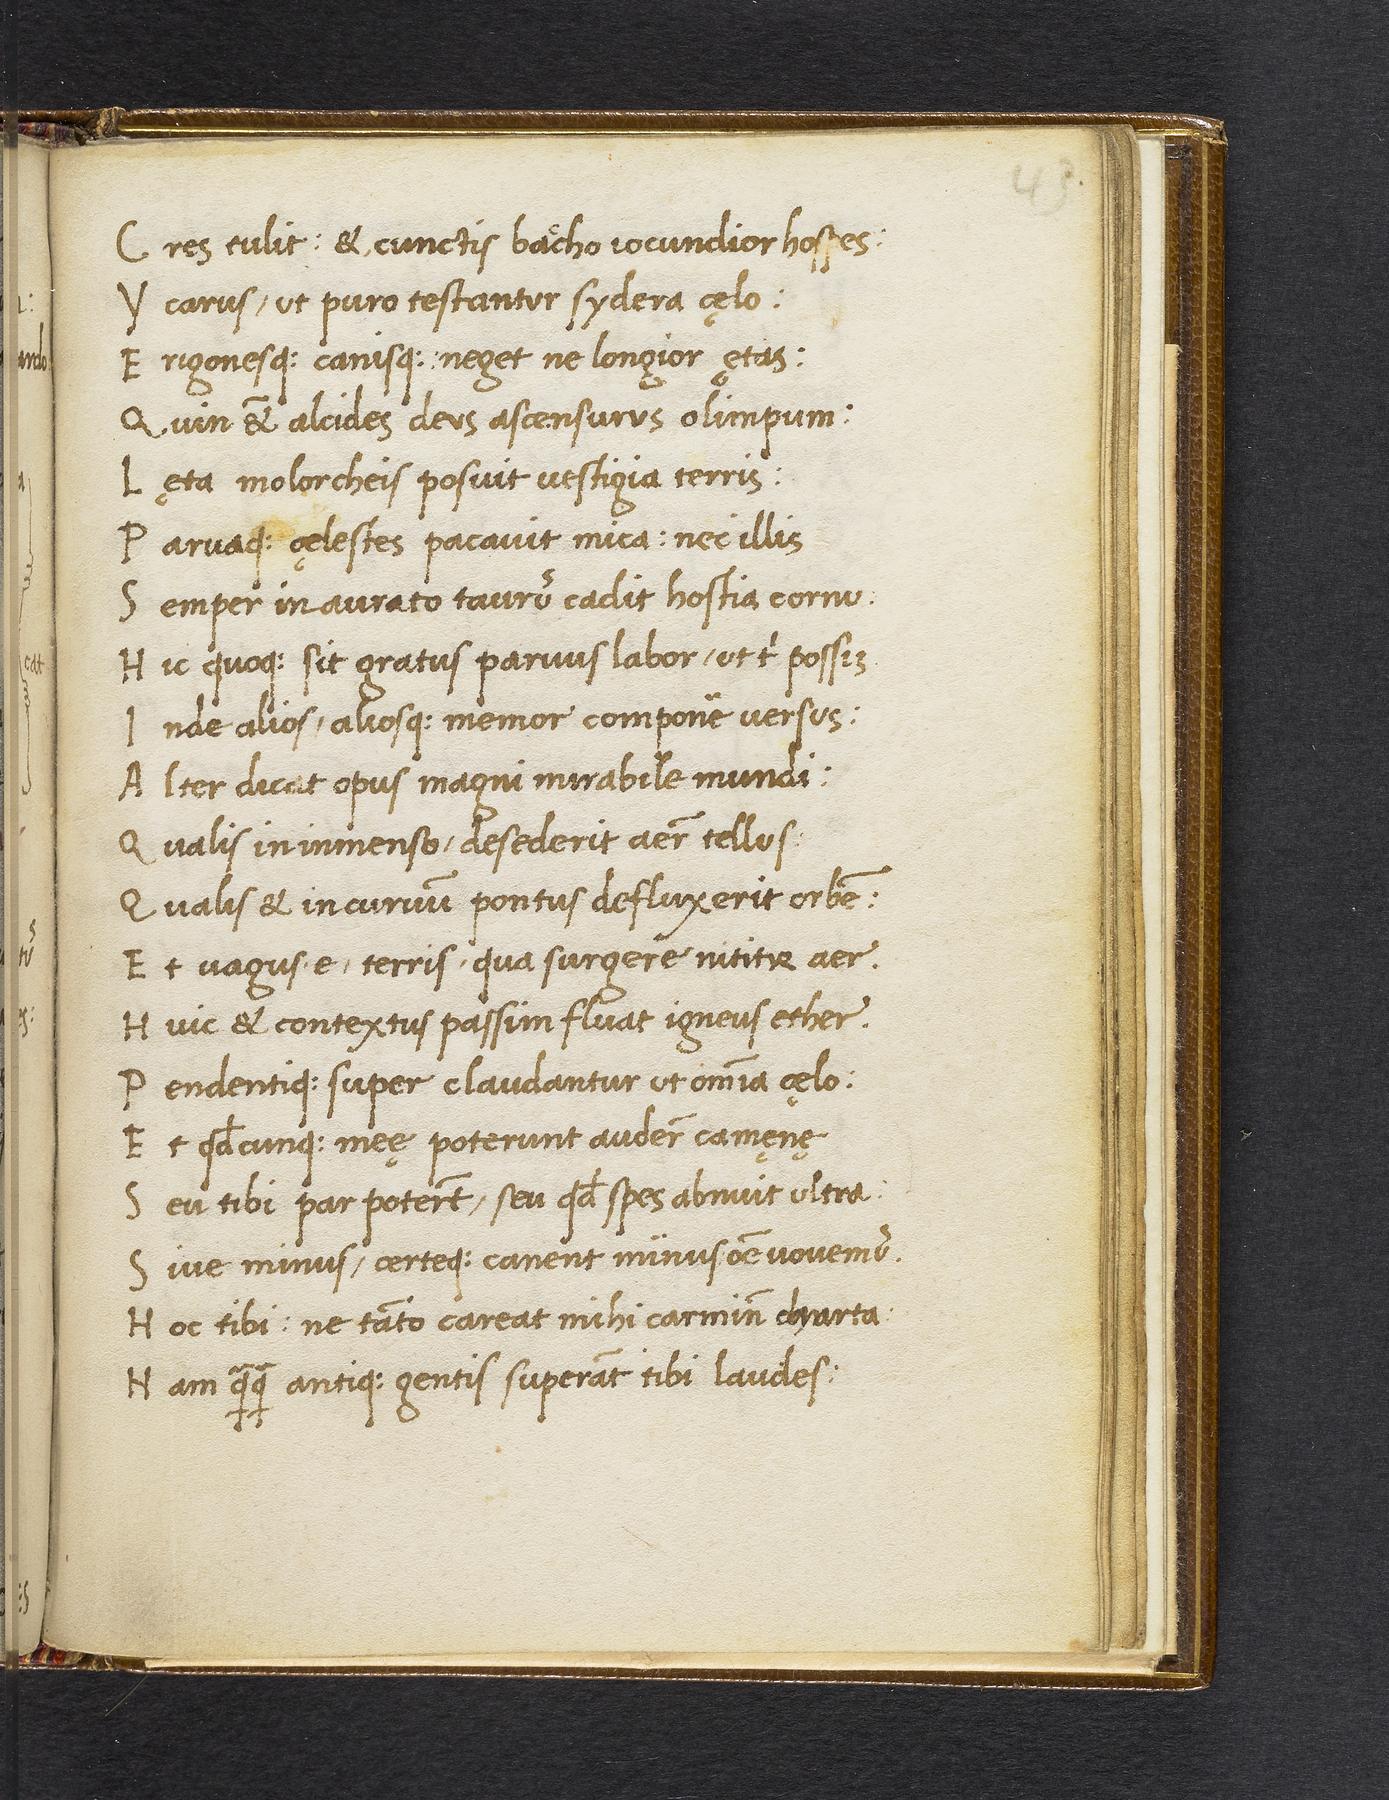 43.
C res tulit: & cunctis bacho iocundior hospes:
Y carus, ut puro testantur sydera cęlo:
E rigonesq: canisq: neget ne longior ętas:
Q uin &̄ alcides deus ascensurus olimpum:
L ęta molorcheis posuit uestigia terris:
P aruaq: cęlestes pacauit mica: nec illis
S emper inaurato taurꝰ cadit hostia cornu.
H ic quoq: sit gratus paruus labor, ut tⁱ possis
I nde alios, aliosq: memor componē uersus:
A lter dicat opus magni mirabile mundi:
Q ualis in inmenso, desederit aer̄ tellus:
Q ualis & in curuū pontus defluxerit orbē:
E t uagus, e, terris, qua surgere nititꝛ aer.
H uic & contextus passim fluat igneus ether.
P endentiq: super claudantur ut om̄ia cęlo:
E t qđcunq: meę poterunt auder̄ camęnę
S eu tibi par poter̄t, seu qđ spes abnuit ultra:
S iue minus, certeq: canent minus oē uouemꝰ.
H oc tibi: ne tāto careat mihi carmin̄ charta:
N am q̄q̄ antiq: gentis superāt tibi laudes: